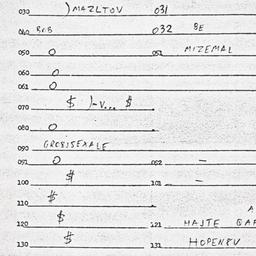 030 ) MAZLTOV 031
040 BRB 032 BE
050 O 051 MIZEMAL
060 O
061 O
070 $ )-V... $
080 O
090 GROBISEXALE
091 O 092 —
100 $ 101 —
110 $
A
120 $ 121 HAJTE
130 $ 131 HOPENBV